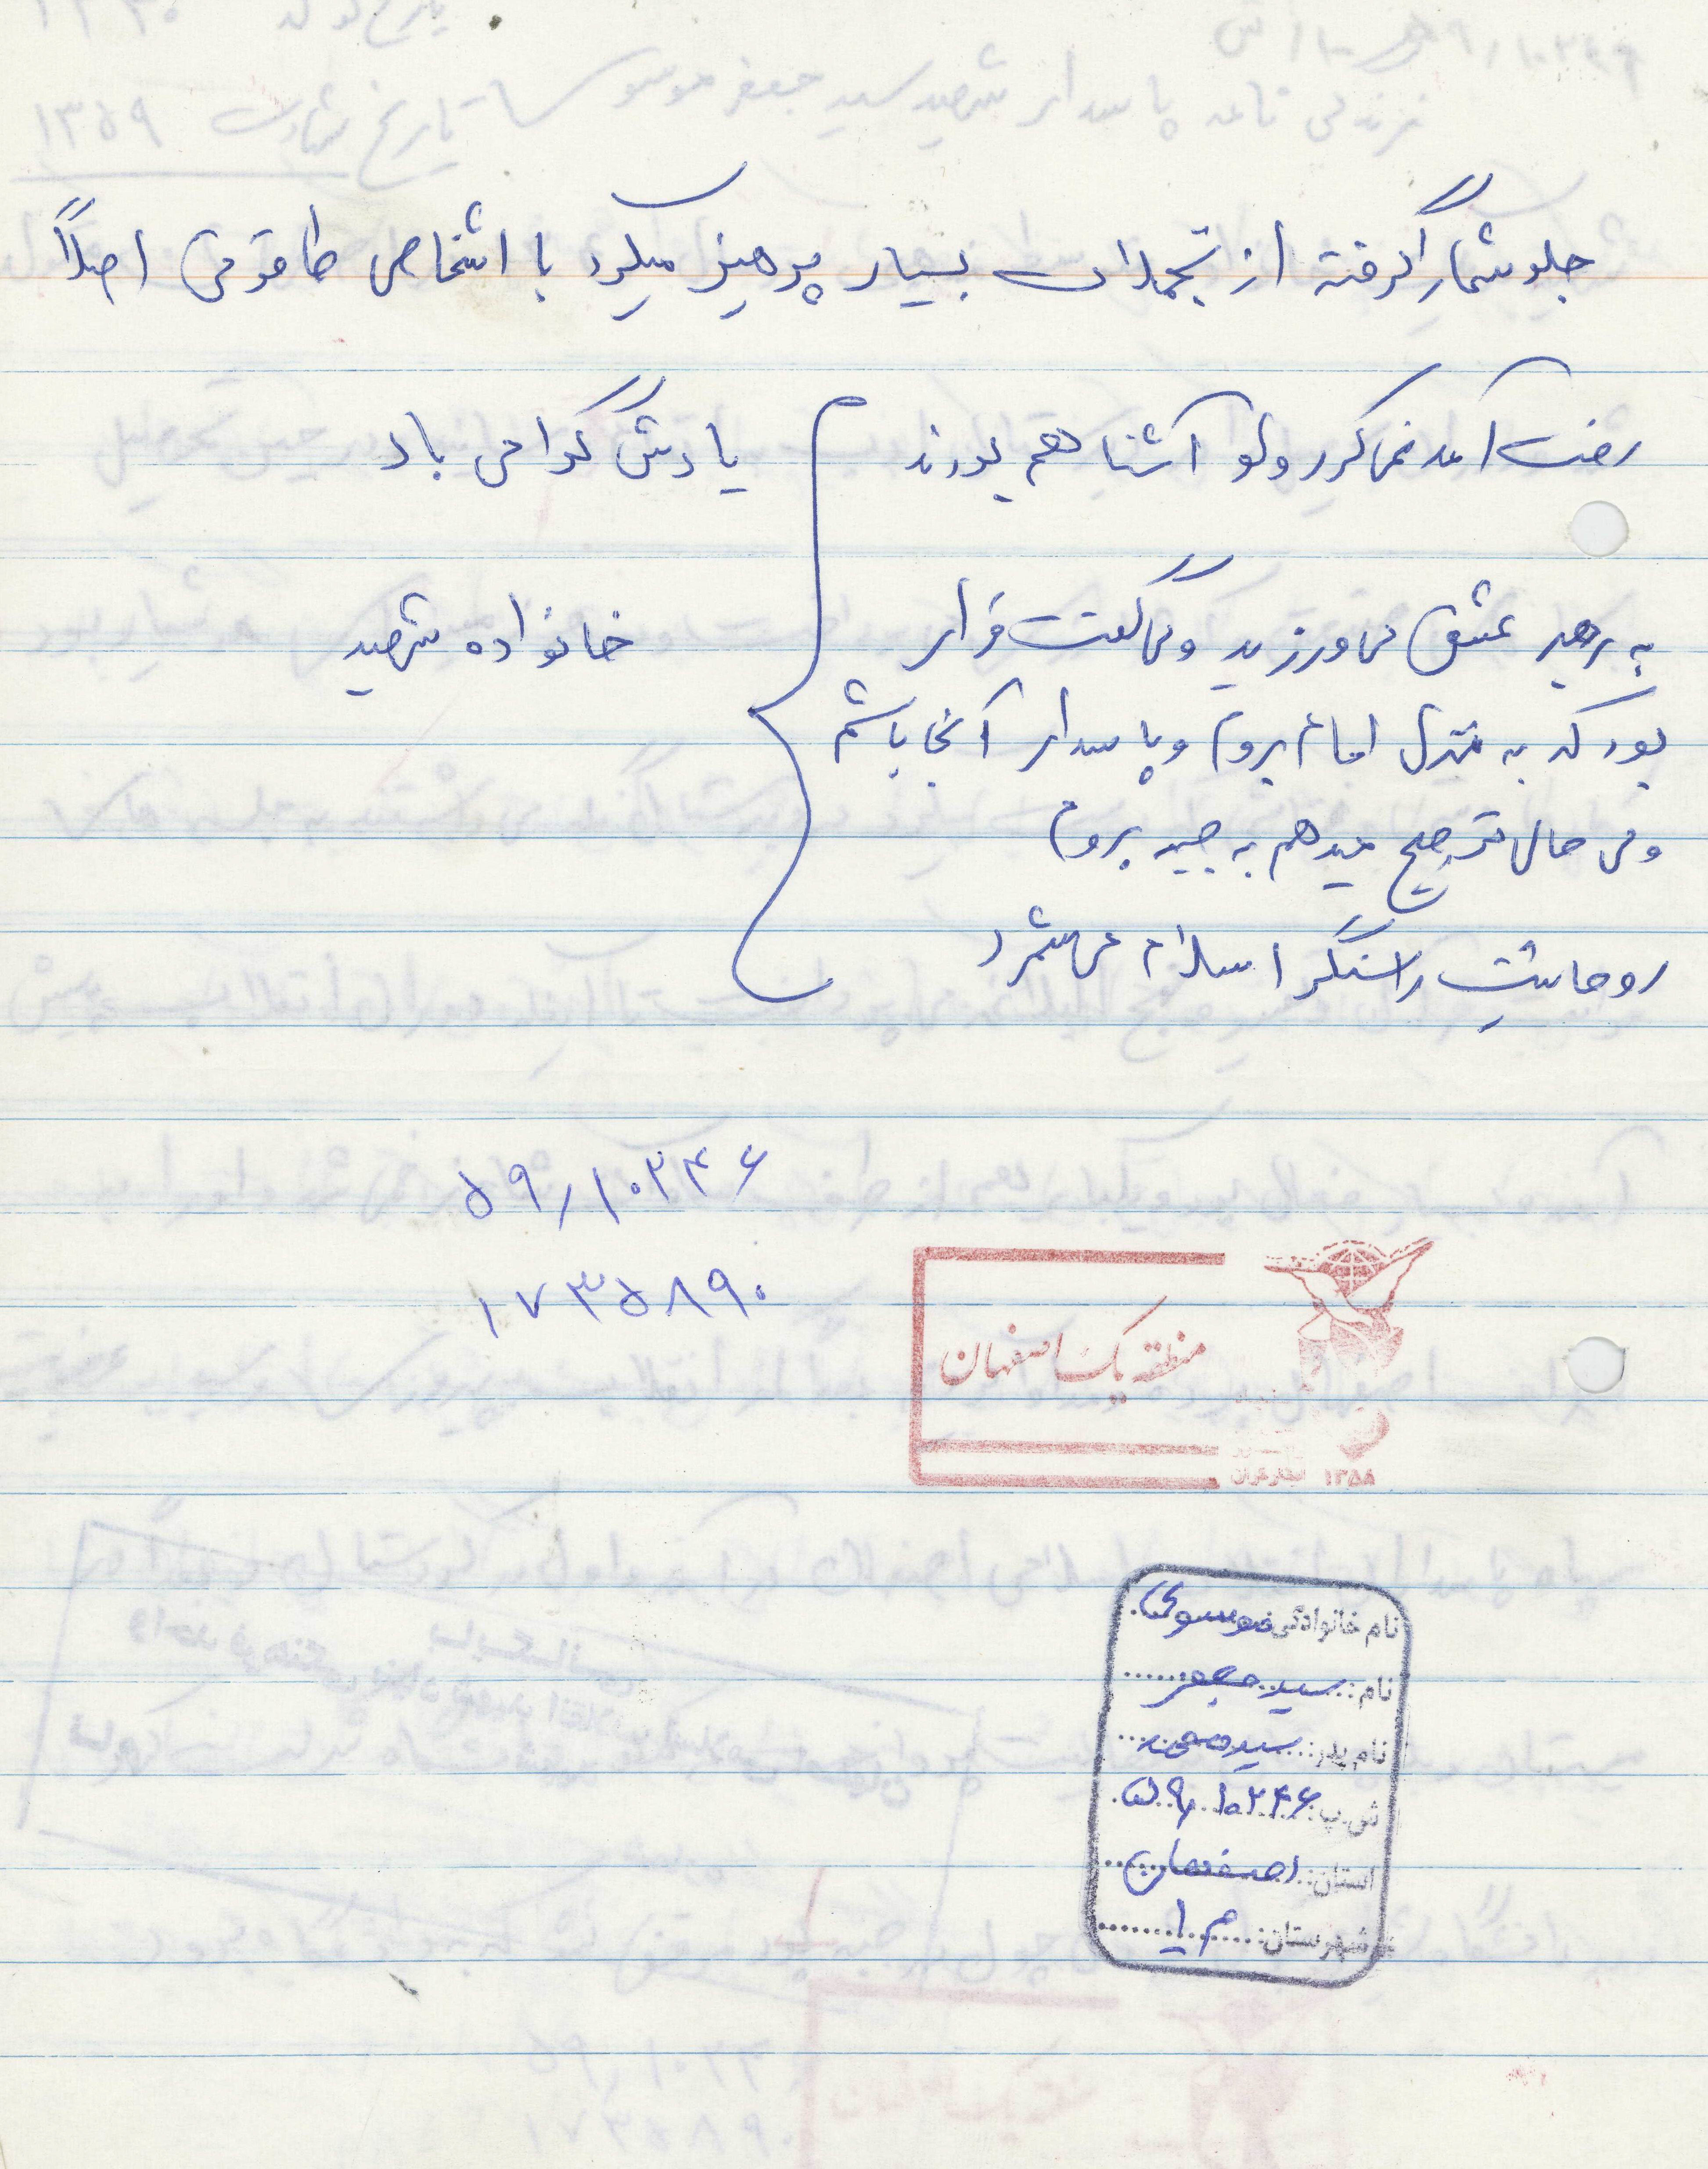 جلو شمار گرفته از تجملات بسیار پرهیز میکرد با اشخاص طاقوتی اصلاً
رفت آمد نمی کرد ولو آشنا هم بودند
به رهبر عشق می ورزید و می گفت قرار
بود که به منزل امام بروم و پاسدار آنجا باشم
ولی حال ترجیح میدهم به جبهه بروم
روحانیت را سنگر اسلام می شمرد
یادش گرامی باد
خانواده شهید
۵۹/۱۰۲۴۶
۱۷۳۵۸۹۰
منطقه یک اصفهان
۱۳۵۸
نام خانوادگی: موسوی
نام: سید جعفر
نام پدر: سید محمد
ش.پ: ۵۹/۱۰۲۴۶
استان: اصفهان
شهرستان: م ۱